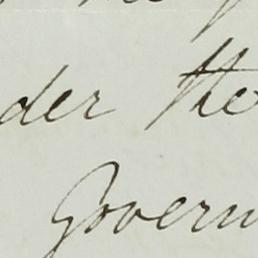 der the
Govern